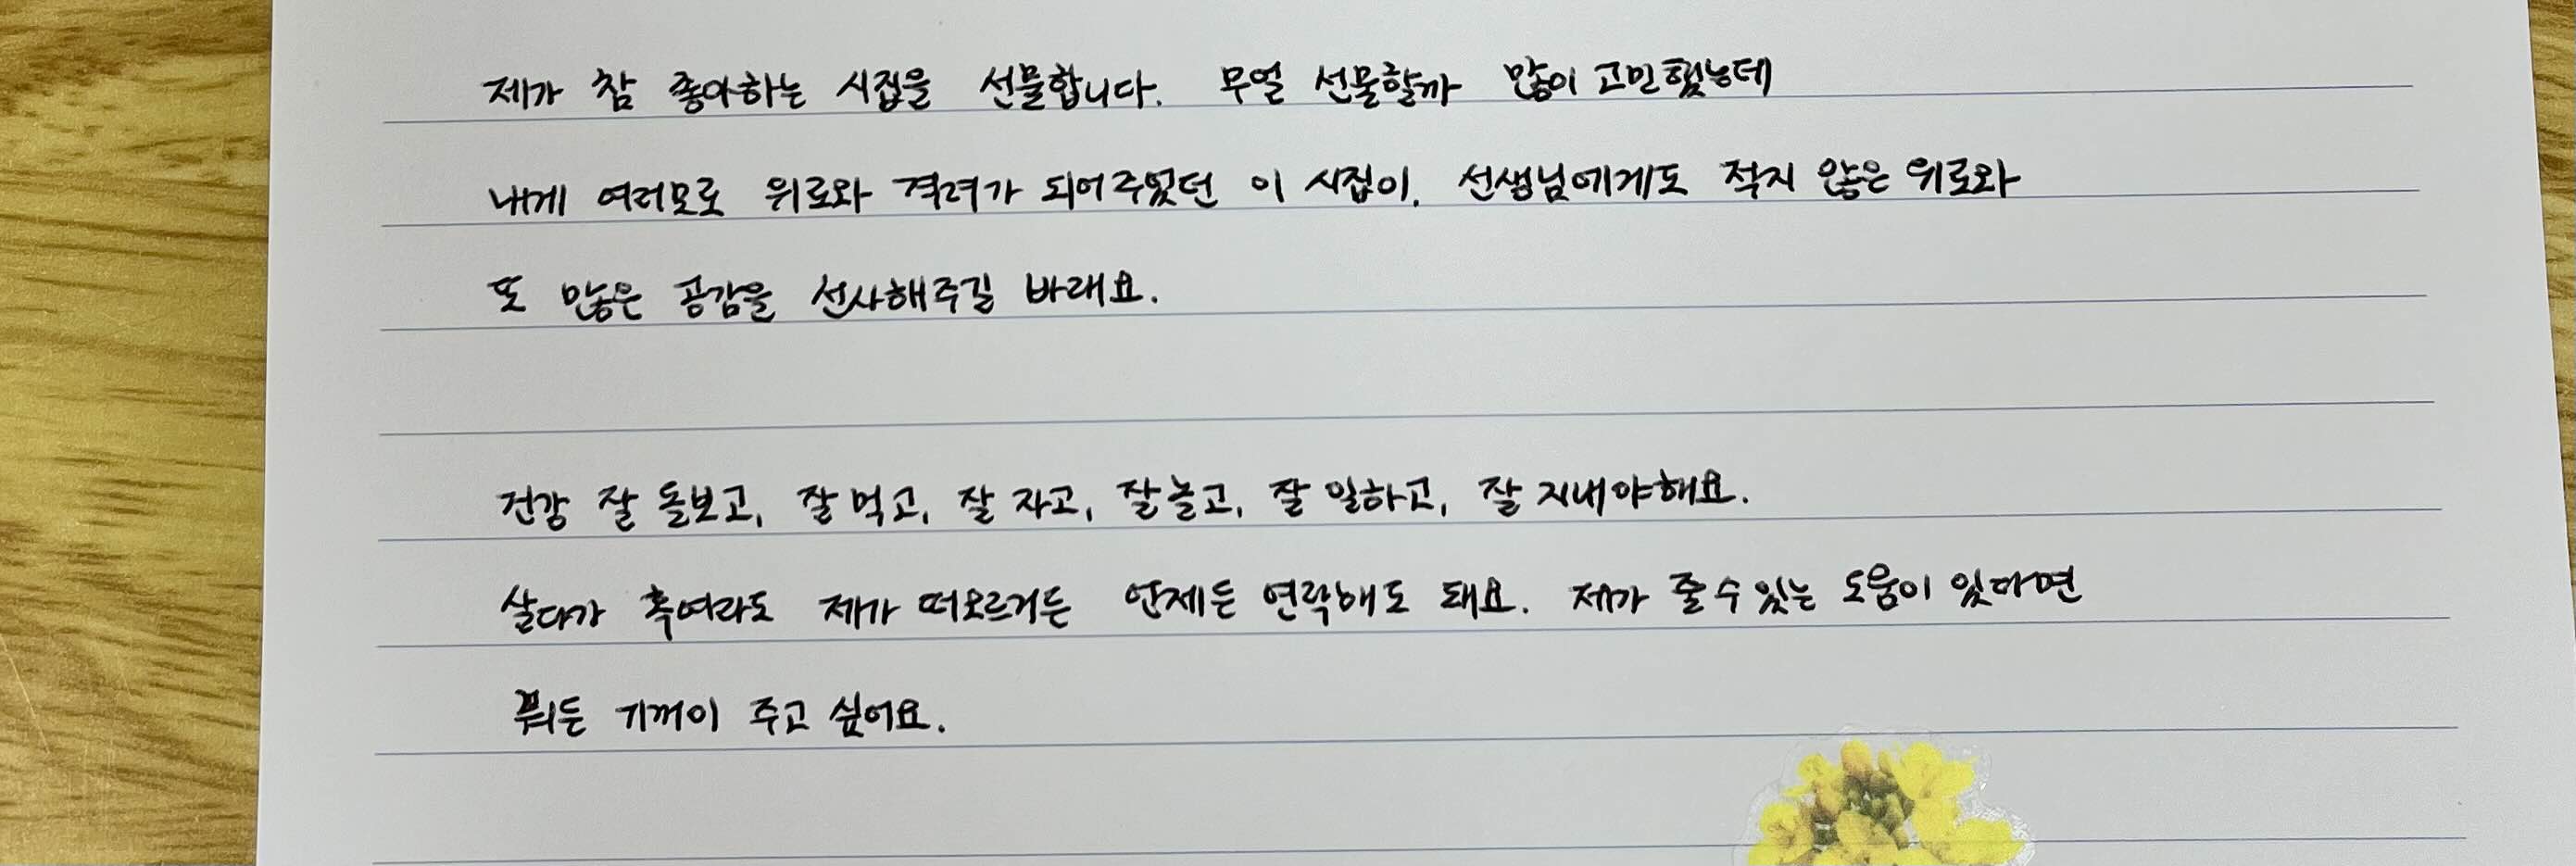 제가 참 좋아하는 시집을 선물합니다. 무얼 선물할까 많이 고민했는데
내게 여러모로 위로와 격려가 되어주었던 이 시집이, 선생님에게도 적지 않은 위로와
또 많은 공감을 선사해주길 바래요.
건강 잘 돌보고, 잘 먹고, 잘 자고, 잘 놀고, 잘 일하고, 잘 지내야해요.
살다가 혹여라도 제가 떠오르거든 언제든 연락해도 돼요. 제가 줄 수 있는 도움이 있다면
뭐든 기꺼이 주고 싶어요.